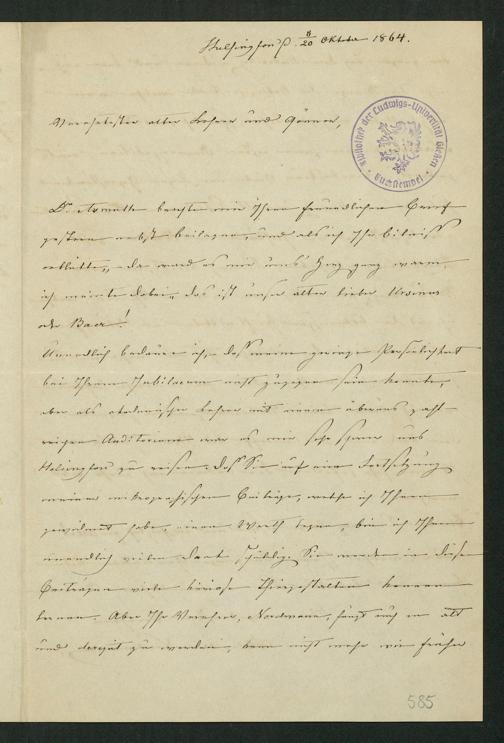 Helsingfors. 8/20 Oktober 1864.
Bibliothek der Ludwigs-Universität Giessen
Buchstempel
Verehrtester alter Lehrer und Gönner,
Dr. brachte mir Ihren freundlichen Brief
gestern nebst Beilagen, und als ich Ihr Bildniss
erblickte, da ward es mir ums Herz ganz warm,
ich meinte dabei, das ist unser alter lieber
oder Baer!
Unendlich bedaure ich, dass meine geringe Persönlichkeit
bei Ihrem Jubilaeum nicht zugegen sein konnte,
aber als akademischer Lehrer mit einem überaus zahl-
reichen Auditorium war es mir sehr schwer aus
Helsingfors zu reisen. Dass Sie auf eine Fortsetzung
meiner mikrographischen Beiträge, welche ich Ihnen
gewidmet habe, einen Werth legen, bin ich Ihnen
unendlich vielen Dank schuldig. Sie werden in diesen
Beiträgen viele kuriose Thiergestalten kennen
lernen. Aber Ihr Verehrer, Nordmann, fängt auch an alt
und zu werden, kann nicht mehr wie früher
585